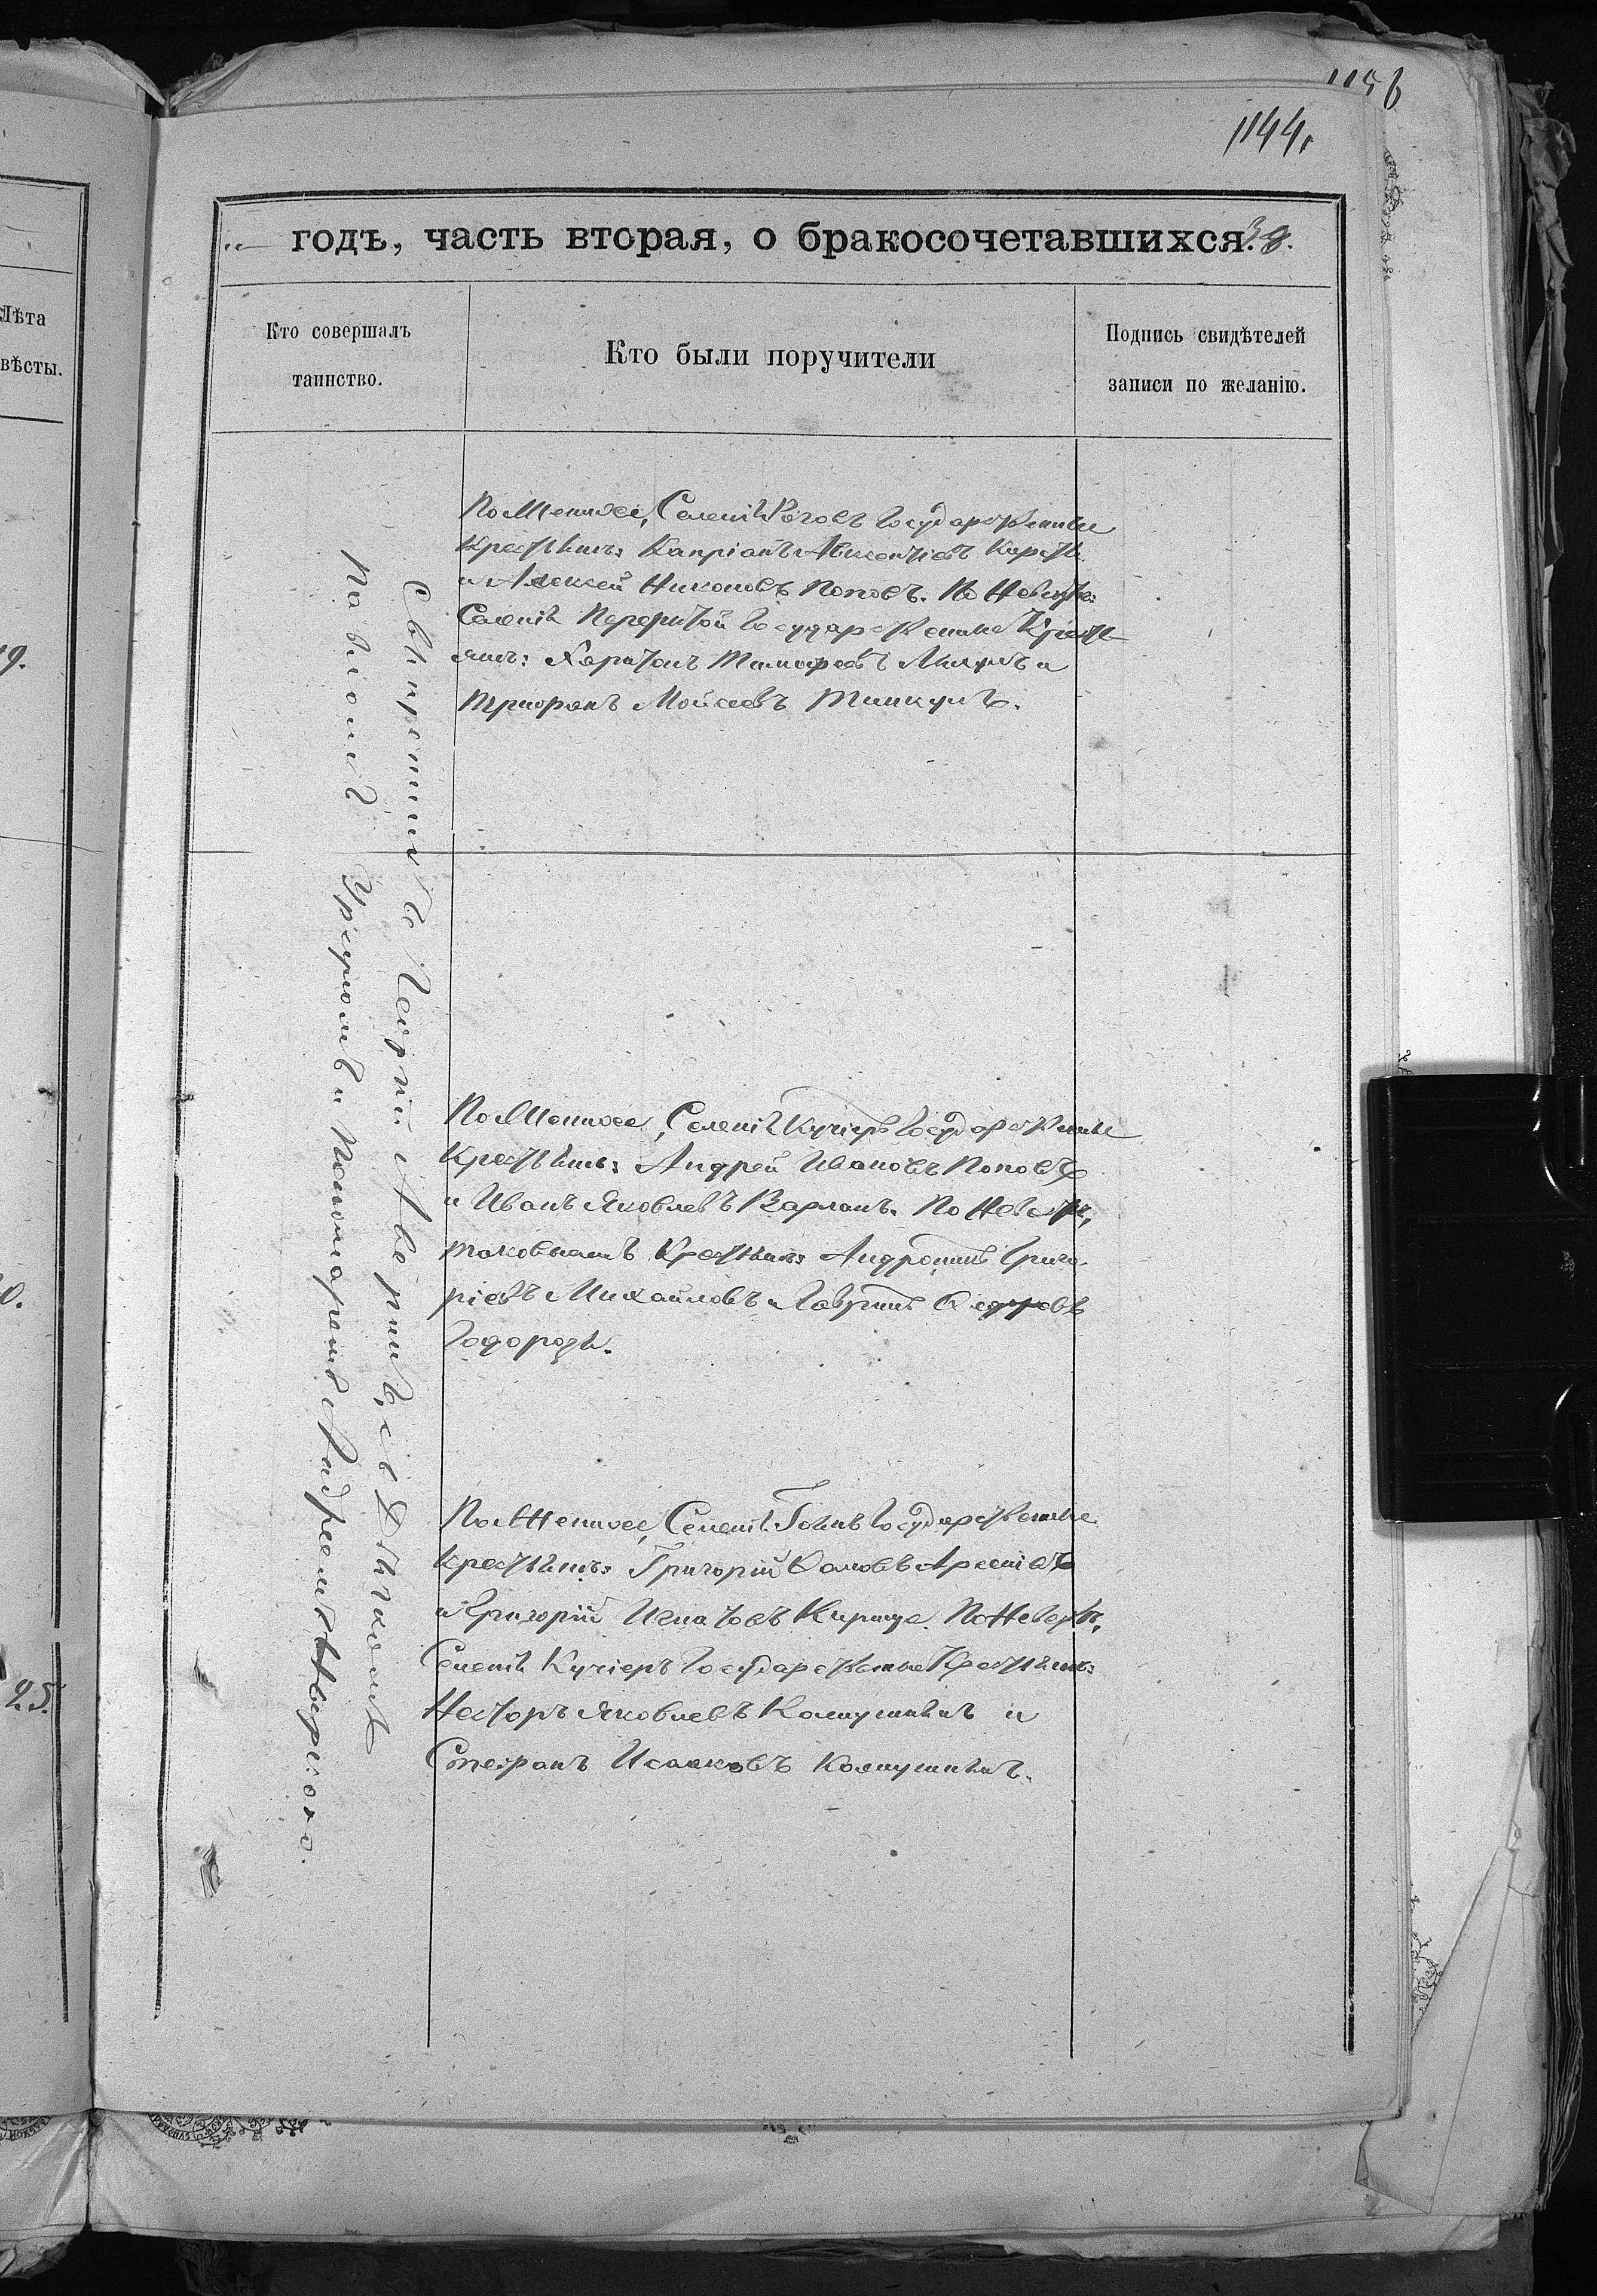 1156
1144.
годъ, часть вторая, о бракосочетавшихся. 38.
Лѣта
вѣсты.
Кто совершалъ
таинство.
Кто были поручители
Подпись свидѣтелей
записи по желанію.
9.
0.
25.
Священникъ Георгій Аверинъ, съ Дьякономъ
Павломъ и Пономаремъ Андреемъ
По Женихѣ, Селенія Государственные
Крестьяне: Капріанъ Авксентіевъ
и Алексей Никоновъ Поповъ. По Невѣстѣ:
Селенія Перерытой Государственные Кресть-
яне: Харитонъ Тимофеевъ и
Трифонъ Мойсеевъ Тинкулъ.
По Женихѣ, Селенія Кучіеръ Государственные
Крестьяне: Андрей Ивановъ Поповъ
и Иванъ Яковлевъ Варланъ. По Невѣстѣ,
таковыежъ Крестьяне: Андроникъ Григо-
ріевъ Михайловъ и Гавріилъ Федоровъ
По Женихѣ, Селенія Государственные
Крестьяне: Григорій Арсеніевъ
и Григорій Игнатьевъ Кирица. По Невѣстѣ,
Селенія Кучіеръ Государственные Крестьяне:
Несторъ Яковлевъ и
Стефанъ Исааковъ